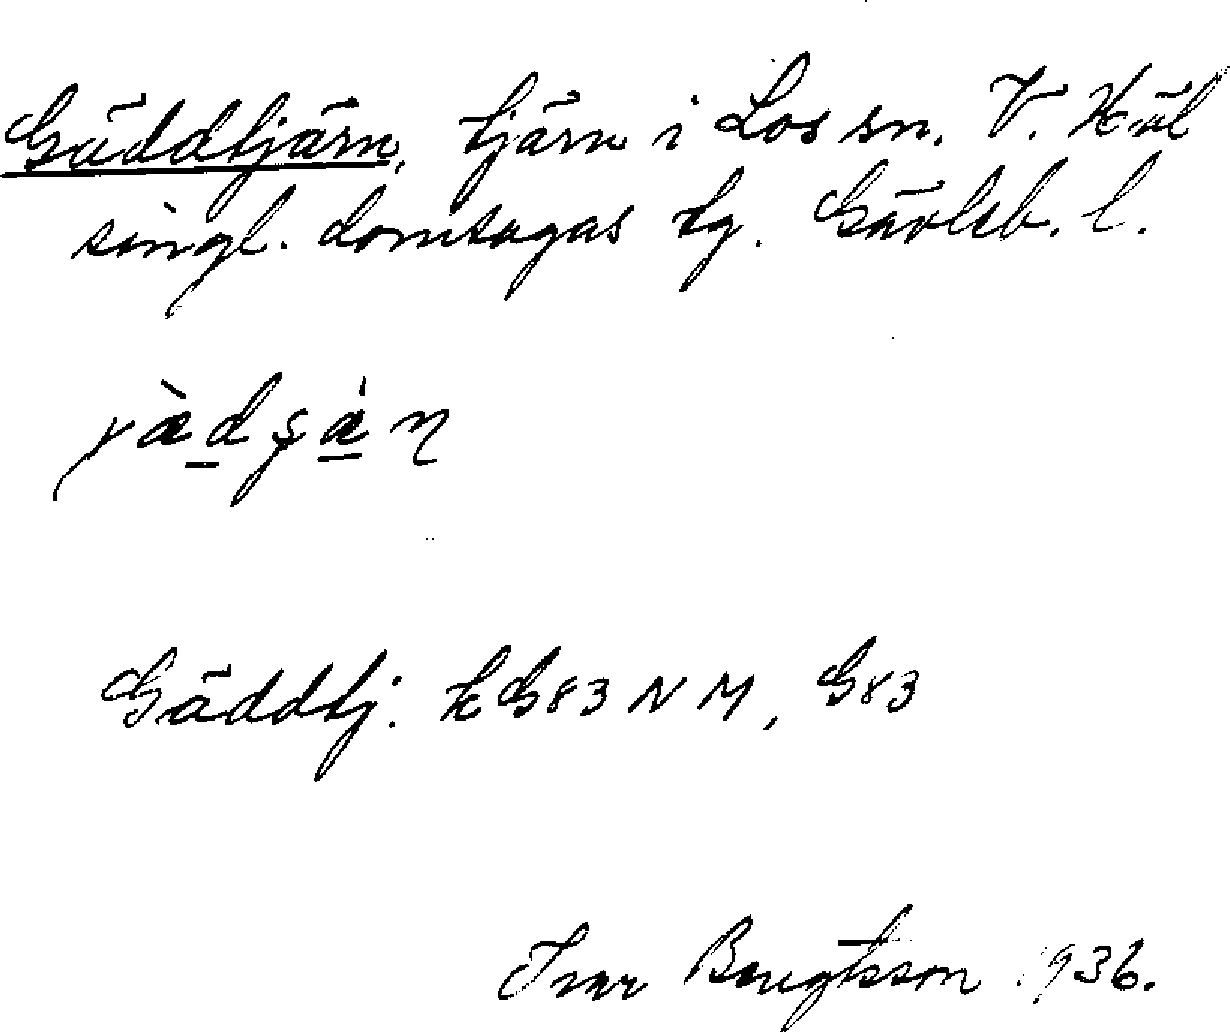 Gäddtjärn, tjärn i Los sn. V. Häl
singl. domsagas tg. Gävleb. l.
Gäddtj. k G83 N M, G83
Ivar Bengtsson 1936.